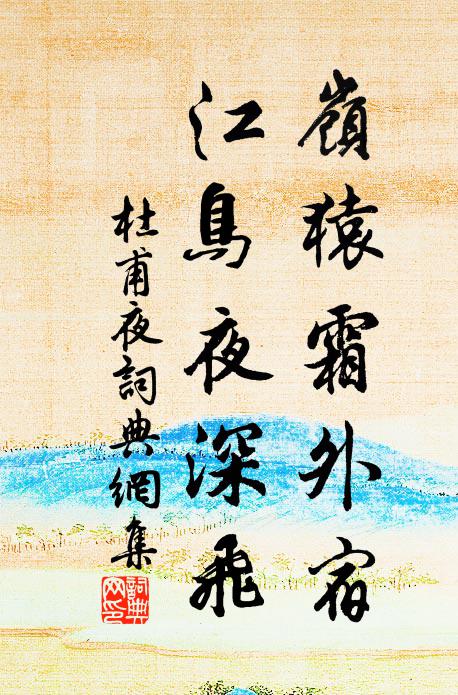 嶺猿霜外宿
江鳥夜深飛
杜甫夜詞典網集
詞典網印